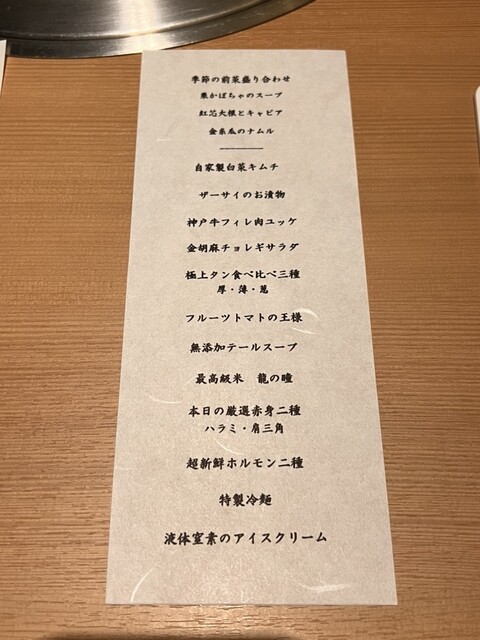 季節の前菜盛り合わせ
栗かぼちゃのスープ
紅芯大根とキャビア
金糸瓜のナムル
自家製白菜キムチ
ザーサイのお漬物
神戸牛フィレ肉ユッケ
金胡麻チョレギサラダ
極上タン食べ比べ三種
厚・薄・葱
フルーツトマトの王様
無添加テールスープ
最高級米 龍の瞳
本日の厳選赤身二種
ハラミ・肩三角
超新鮮ホルモン二種
特製冷麺
液体窒素のアイスクリーム